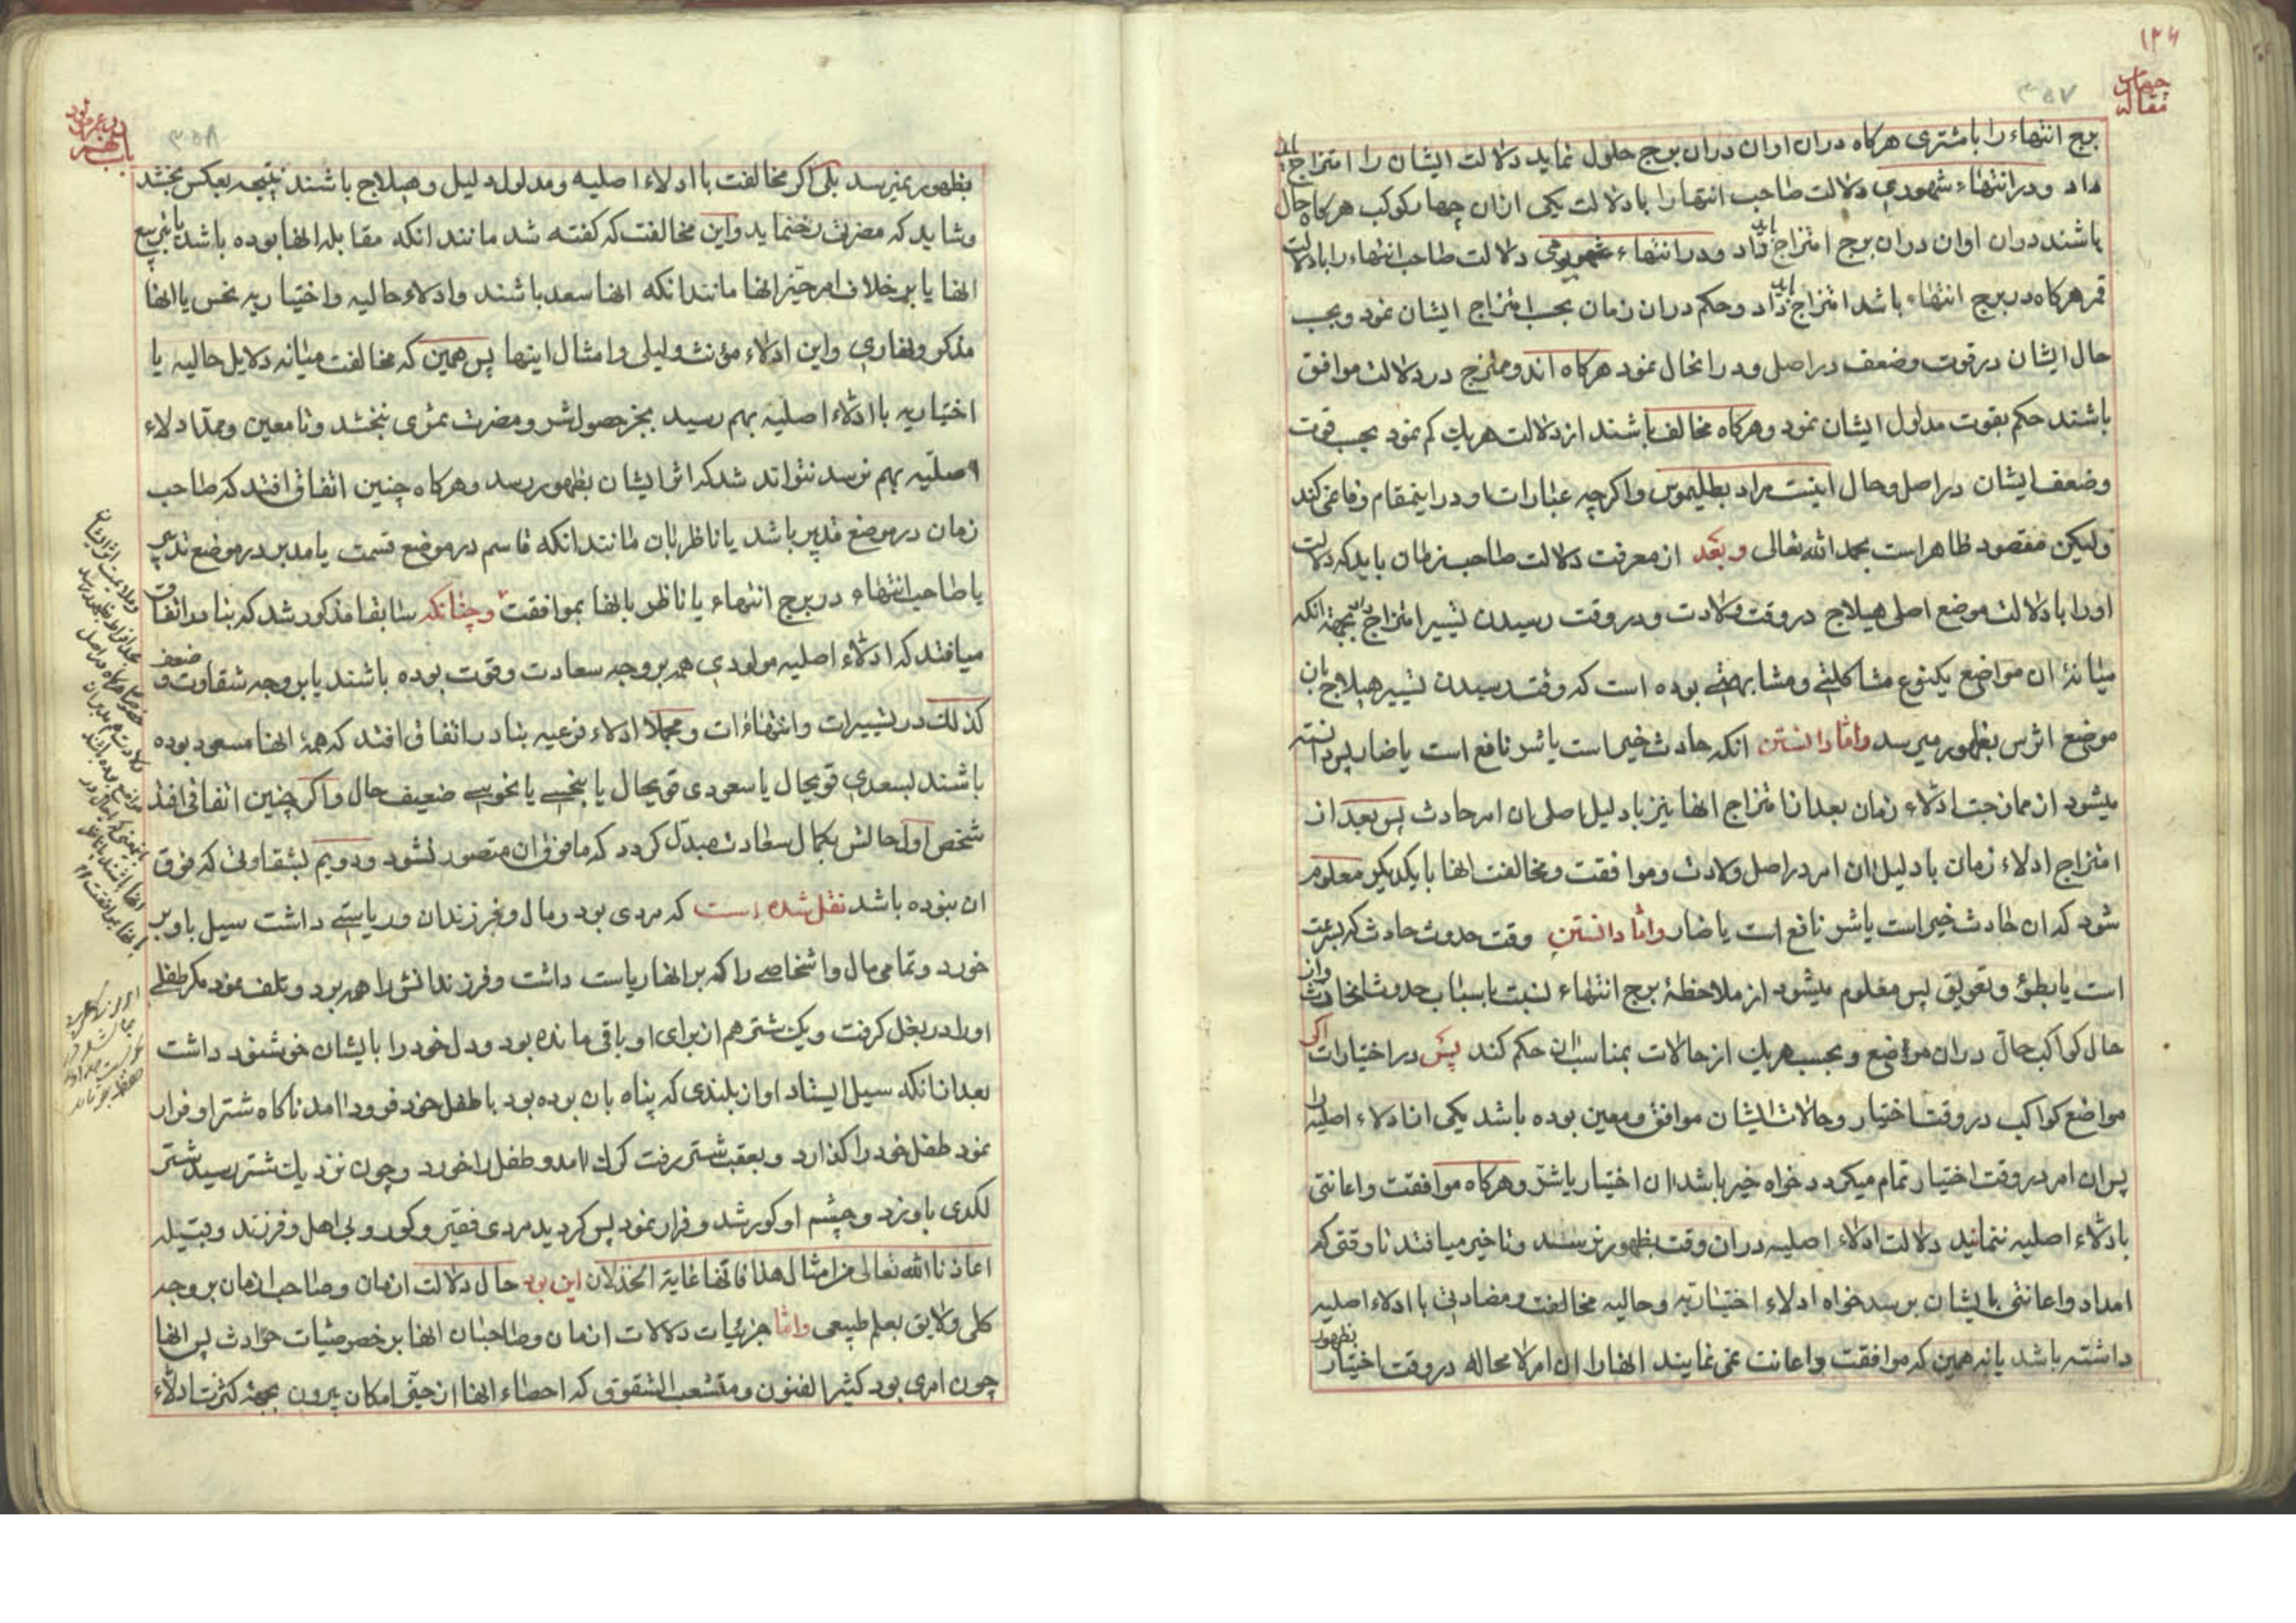 ۱۳۶
مقاله چهارم
۳۵۷
برج انتهاء را با مشتری هرکاه دران اوان دران برج حلول نماید دلالت ایشان را امتزاج باید
داد ودر انتهاء شهوری دلالت صاحب انتها را با دلالت یکی ازان چهار کوکب هرکاه حال
باشند دران اوان دران برج امتزاج باید داد ودر انتهاء دلالت صاحب انتهاء را با دلالت
قمر هرکاه در برج انتهاء باشد امتزاج باید داد وحکم دران زمان بحسب امتزاج ایشان نمود وبحسب
حال ایشان در قوت وضعف در اصل ودر انحال نمود هرکاه اندو ممتزج در دلالت موافق
باشند حکم بقوت مدلول ایشان نمود وهرکاه مخالف باشند از دلالت هریك کم نمود بحسب قوت
وضعف ایشان در اصل وحال اینست مراد بطلیموس واکرچه عبارات او در اینمقام وفا نمی کند
ولیکن مقصود ظاهر است بحمد الله تعالی وبعد از معرفت دلالت صاحب زمان باید که دلالت
اورا با دلالت موضع اصلی هیلاج در وقت ولادت ودر وقت رسیدن تسییر امتزاج داد بجهة انکه
میانهٔ ان مواضع یکنوع مشاکلتی ومشابهتی بوده است که وقت رسیدن تسییر هیلاج بان
موضع اثرش بظهور میرسد واما دانستن انکه حادث خیر است یا شر نافع است یا ضار پس دانسته
میشود از ممازجت ادلاء زمان بعد از امتزاج انها نیز با دلیل اصلی ان امر حادث پس بعد از
امتزاج ادلاء زمان با دلیل ان امر در اصل ولادت وموافقت ومخالفت انها با یکدیکر معلوم
شود که ان حادث خیر است یا شر نافع است یا ضار واما دانستن وقت حدوث حادث که بسرعت
است یا بطؤ وتعویق پس معلوم میشود از ملاحظهٔ برج انتهاء نسبت باسباب حدوث انحادث واز
حال کواکب حال دران مواضع وبحسب هریك از حالات بمناسب ان حکم کند پس در اختیارات اکر
مواضع کواکب در وقت اختیار وحالات ایشان موافق ومعین بوده باشد یکی از ادلاء اصلیه را
پس ان امر در وقت اختیار تمام میکردد خواه خیر باشد ان اختیار یا شر وهرکاه موافقت واعانتی
با دلاء اصلیه ننمایند دلالت ادلاء اصلیه دران وقت بظهور نرسند وتاخیر میافتد تا وقتی که
امداد واعانتی بایشان برسد خواه ادلاء اختیاریه وحالیه مخالفت ومضادتی با ادلاء اصلیه
داشته باشد یا نه همین که موافقت واعانت نمی نمایند انها را ان امر لا محاله در وقت اختیار بظهور
۳۵۸
بظهور نمیرسد بلی اکر مخالفت با ادلاء اصلیه ومدلول دلیل وهیلاج باشند نتیجه بعکس بخشد
وشاید که مضرت رخ نماید واین مخالفت که کفته شد مانند انکه مقابله انها بوده باشد یا تربیع
انها یا بر خلاف امر حیز انها مانند انکه انها سعد باشند وادلاء حالیه واختیاریه نحس یا انها
مذکر ونهاری واین ادلاء مؤنث ولیلی وامثال اینها پس همین که مخالفت میانه دلایل حالیه یا
اختیاریه با ادلاء اصلیه بهم رسید بجز حصول شر ومضرت ثمری نبخشد وتا معین وممد ادلاء
اصلیه بهم نرسد نتواند شد که اثر ایشان بظهور رسد وهرکاه چنین اتفاق افتد که صاحب
زمان در موضع تدبیر باشد یا ناظر بان مانند انکه قاسم در موضع قسمت یا مدبر در موضع تدبیر
یا صاحب انتهاء در برج انتهاء یا ناظر بانها بموافقت وچنانکه سابقا مذکور شد که بنادر اتفاق
میافتد که ادلاء اصلیه مولودی همه بر وجه سعادت وقوت بوده باشند یا بر وجه شقاوت وضعف
کذلك در تسییرات وانتهاءات ومجملا ادلاء فرعیه بنادر اتفاق افتد که همهٔ انها مسعود بوده
باشند بسعدی قویحال یا سعودی قویحال یا بنحسی یا نحوسی ضعیف حال واکر چنین اتفاق افتد
شخص اول حالش بکمال سعادت مبدل کردد که ما فوق ان متصور نشود ودویم بشقاوتی که فوق
ان نبوده باشد نقل شده است که مردی بود ومال وفرزندان وریاستی داشت سیل باو بر
خورد وتمامی مال واشخاصی را که بر انها ریاست داشت وفرزندانش را همه برد وتلف نمود مکر طفلی
اورا در بغل کرفت ویك شتر هم از برای او باقی مانده بود ودل خود را بایشان خوشنود داشت
بعد از انکه سیل ایستاد او از بلندی که پناه بان بوده بود با طفل خود فرود امد ناکاه شتر او فرار
نمود طفل خود را کذارد وبعقب شتر رفت کرك امد وطفل را خورد وچون نزدیك شتر رسید شتر
لکدی باو زد وچشم او کور شد وفرار نمود پس کردید مردی فقیر وکور وبی اهل وفرزند وقبیله
اعاذنا الله تعالی من امثال هذا فانها غایة الخذلان این بود حال دلالت ازمان وصاحب ازمان بر وجه
کلی ولایق بعلم طبیعی واما جزئیات دلالات ازمان وصاحبان انها بر خصوصیات حوادث پس انها
چون امری بود کثیر الفنون ومتشعب الشقوق که احصاء انها از حیز امکان بیرون بجهة کثرت ادلاء